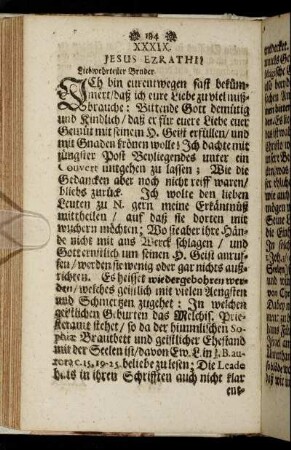 ❁ 184 ❁
XXXIX.
JESUS EZRATHI!
Liebwehrtester Bruder.
ICh bin eurentwegen fast beküm-
mert/ daß ich eure Liebe zu viel miß-
brauche: Bittende Gott demütig
und Kindlich/ daß er für euere Liebe euer
Gemüt mit seinem H. Geist erfüllen/ und
mit Gnaden krönen wolle: Ich dachte mit
jüngster Post Beyliegendes unter ein
Couvert mitgehen zu lassen; Wie die
Gedancken aber noch nicht reiff waren/
bliebs zurück. Ich wolte den lieben
Leuten zu N. gern mehr Erkäntnüß
mittheilen/ auf daß sie dorten mit
wuchern möchten; Wo sie aber ihre Hän-
de nicht mit ans Werck schlagen/ und
Gott ernstlich um seinen H. Geist anruf-
fen/ werden sie wenig oder gar nichts auß-
richten. Es heisset wiedergebohren wer-
den/ welches geistlich mit vielen Aengsten
und Schmertzen zugehet: In welchen
geistlichen Geburten das Melchis. Prie-
steramt stehet/ so da der himmlischen So-
phiæ Brautbett und geistlicher Ehestand
mit der Seelen ist/ davon Ew. L. in J. B. au-
rora c. 15. 19-25. beliebe zu lesen; Die Leade
hats in ihren Schrifften auch nicht klar